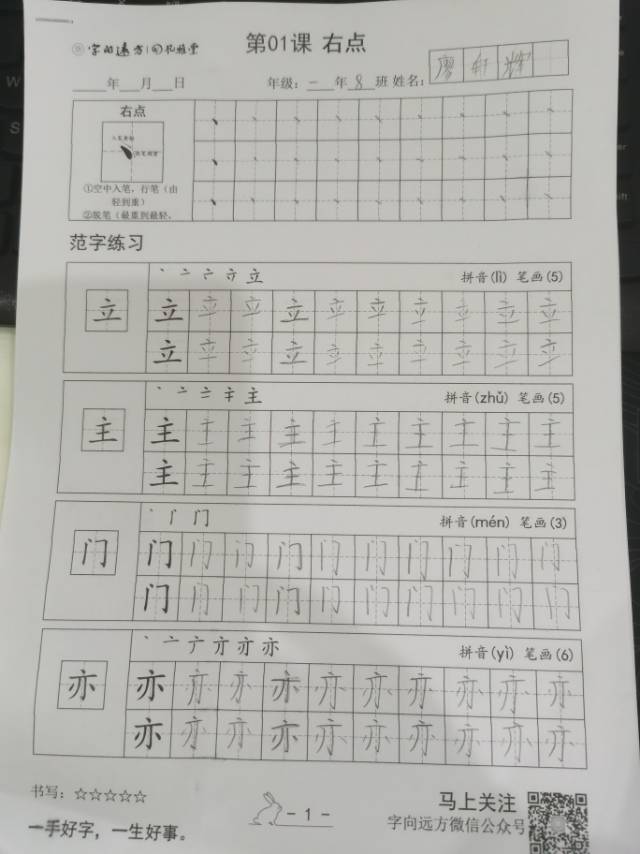 字向远方
第01课 右点
____年___月___日 年级：一年8班 姓名：廖
右点
①空中入笔，行笔（由
轻到重）
②脱笔（最重到最轻，
范字练习
丶 亠 立 拼音(lì) 笔画(5)
立 立 立 立 立 立 立 立 立 立 立
立 立 立 立 立 立 立 立 立 立
丶 亠 主 拼音(zhǔ) 笔画(5)
主 主 主 主 主 主 主 主 主 主 主
主 主 主 主 主 主 主 主 主 主
丶 门 拼音(mén) 笔画(3)
门 门 门 门 门 门 门 门 门 门 门
门 门 门 门 门 门 门 门 门 门
丶 亠 亦 拼音(yì) 笔画(6)
亦 亦 亦 亦 亦 亦 亦 亦 亦 亦 亦
亦 亦 亦 亦 亦 亦 亦 亦 亦 亦
书写：☆☆☆☆☆
一手好字，一生好事。
- 1 -
马上关注
字向远方微信公众号